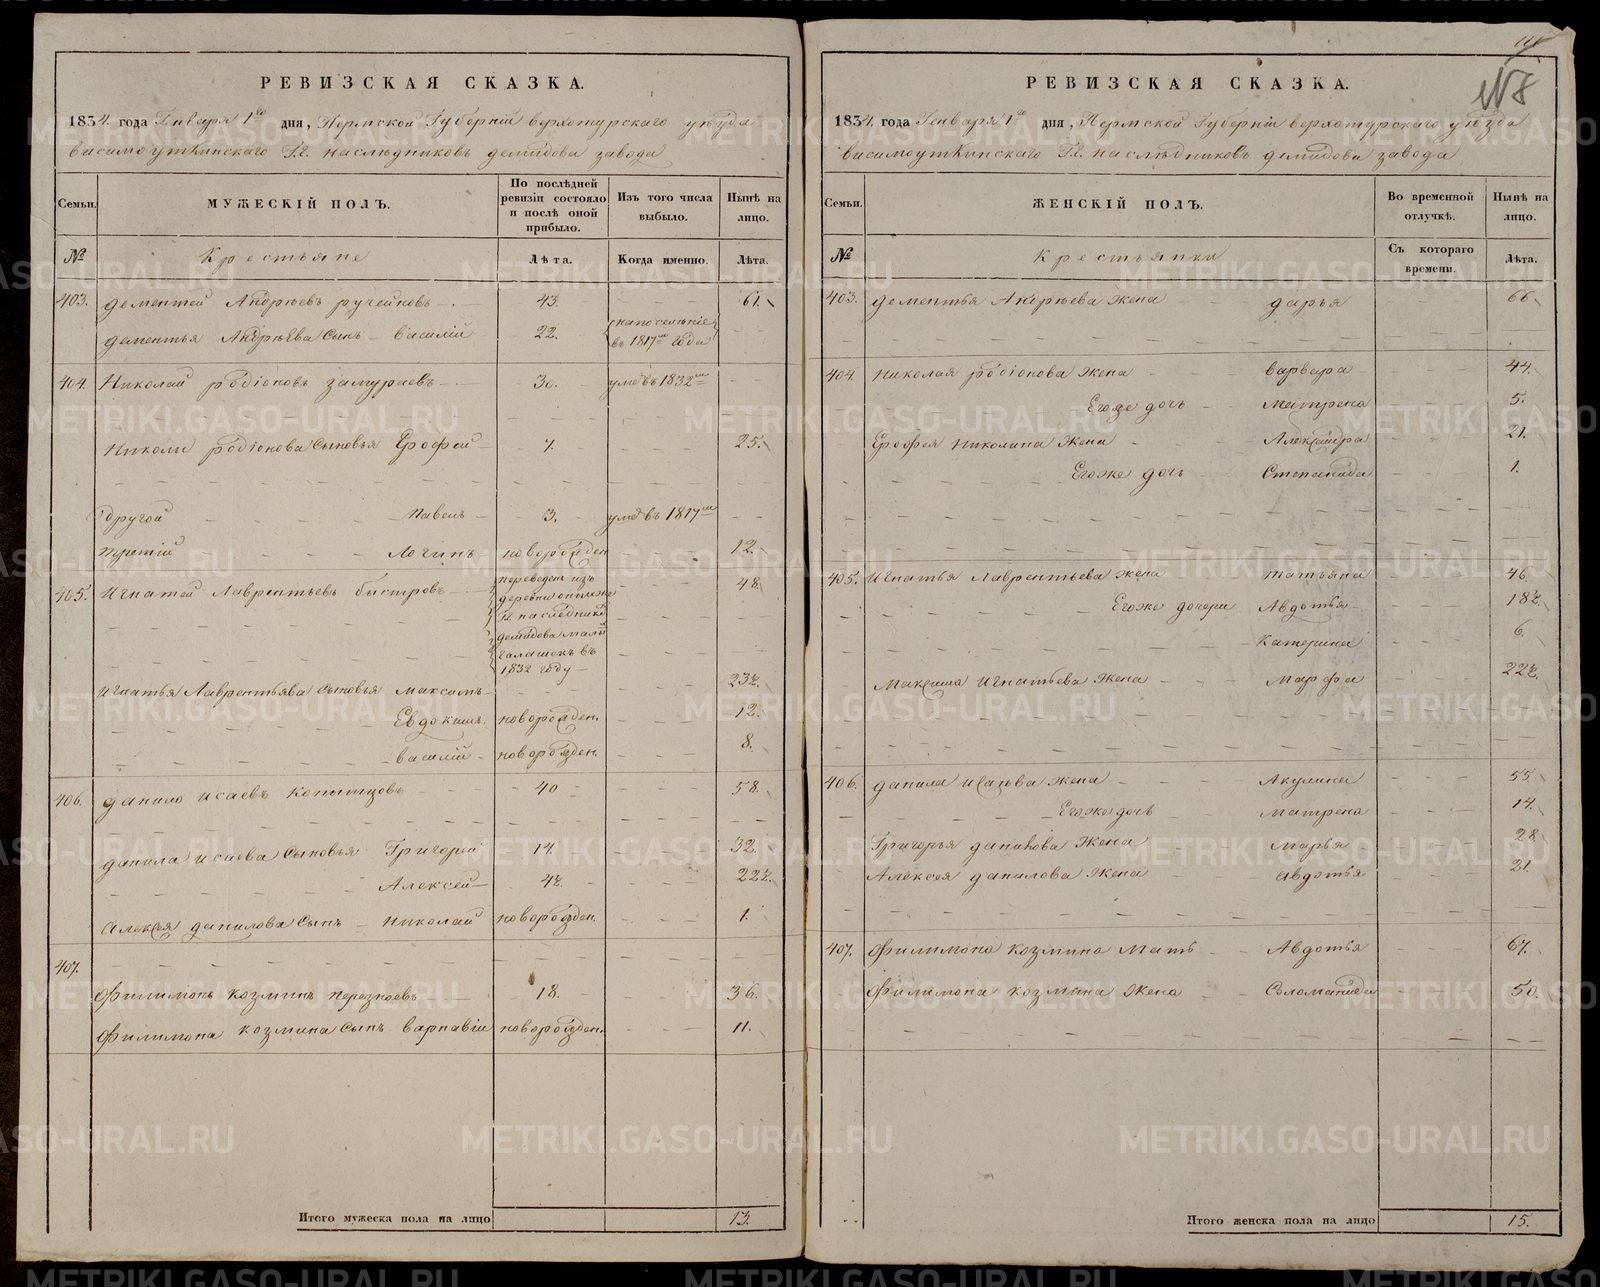 118
РЕВИЗСКАЯ СКАЗКА.
1834. года Генваря 1го дня, Пермской Губерніи верхотурскаго уѣзда
висимоуткинскаго Г.г. наслѣдниковъ демидова завода
Семьи. МУЖЕСКІЙ ПОЛЪ. По послѣдней ревизіи состояло и послѣ оной прибыло. Изъ того числа выбыло. Нынѣ на лицо.
№ Крестьяне Лѣта. Когда именно. Лѣта.
403. дементей Андрѣевъ ручейковъ 43. 61.
дементья Андрѣева Сынъ василій 22. на поселѣніе въ 1817м года
404. Николай родіоновъ замураевъ 30. умр въ 1832м
Николы родіонова Сыновья Ерофей 7. 25.
другой павелъ 3. умр въ 1817м
третій Логинъ новорожден 12.
405. Игнатей Лаврентьевъ быстровъ переведен изъ 48
деревни
Гг. наслѣдник
демидова малы
галашекъ въ
1832 году
Игнатья Лаврентьява Сыновья максимъ 23½.
Евдокимъ. новорожден. 12.
василій новорожден. 8.
406. данило исаевъ копытцовъ 40 58.
данила исаева Сыновья Григорей 14. 32.
Алексей 4½. 22½.
Алексея данилова Сынъ николай новорожден. 1.
407.
Филимонъ козминъ перезноевъ 18. 36.
Филимона козмина Сынъ варнавіи новорожден. 11.
Итого мужеска пола на лицо 13.
РЕВИЗСКАЯ СКАЗКА.
1834. года Генваря 1го дня, Пермской Губерніи верхотурскаго уѣзда
висимоуткинскаго Г.г. наслѣдниковъ демидова завода
Семьи. ЖЕНСКІЙ ПОЛЪ. Во временной отлучкѣ. Нынѣ на лицо.
№ Крестьянки Съ котораго времени. Лѣта.
403. дементья Андрѣева жена дарья 66
404. Николая родіонова жена варвара 44.
Егоже дочь матрена 5.
Ерофея николина жена Александра 21.
Егоже дочь Степанида 1.
405. Игнатья Лаврентьева жена татьяна 46.
Егоже дочери Авдотья 18½.
катерина 6.
Максима игнатьева жена марфа 22½.
406. данила исаева жена Акулина 55.
Егоже дочь матрена 14.
Григорья данилова жена марья 28
Алексея данилова жена авдотья 21.
407. Филимона козмина мать Авдотья 67.
Филимона козмина жена Соломанида 50.
Итого женска пола на лицо 15.
METRIKI.GASO-URAL.RU